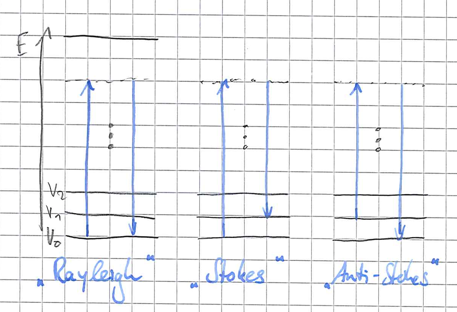 E
V₂
V₁
V₀
„Rayleigh“ „Stokes“ „Anti-Stokes“